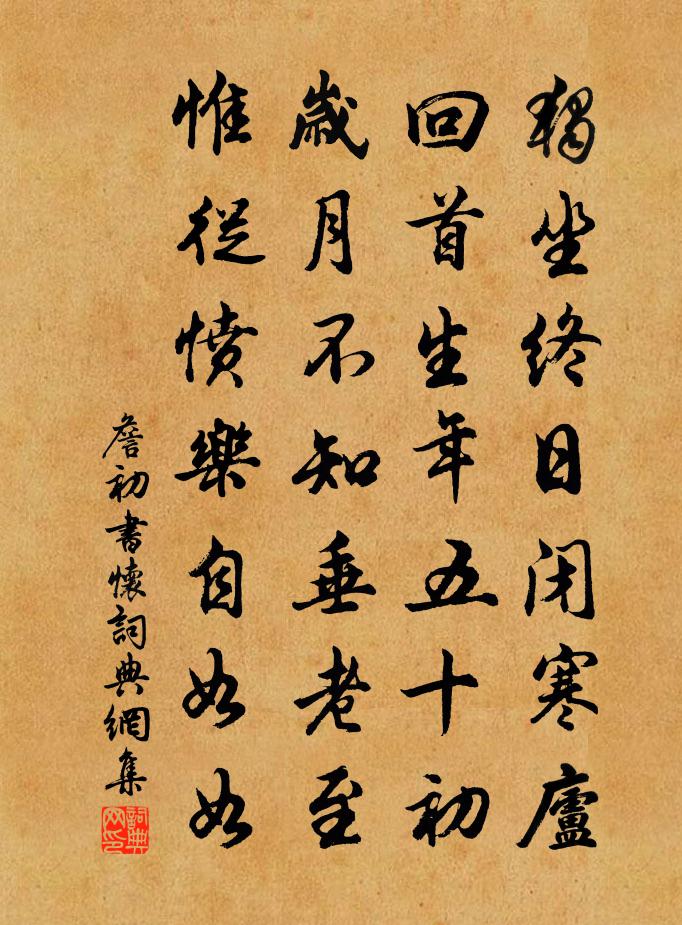 獨坐終日閉寒廬
回首生年五十初
歲月不知垂老至
惟從憤樂自如如
詹初書懷詞典網集
詞典网印